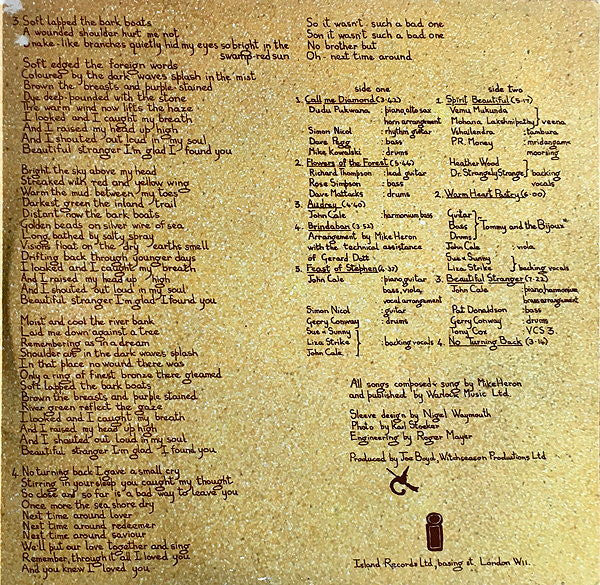 3. Soft lapped the bark boats
A wounded shoulder hurt me not
Snake-like branches quietly hid my eyes so bright in the
swamp-red sun
Soft edged the foreign words
Coloured by the dark waves splash in the mist
Brown the breasts and purple stained
Dye deep pounded with the stone
The warm wind now lifts the haze
I looked and I caught my breath
And I raised my head up high
And I shouted out loud in my soul
Beautiful stranger I'm glad I found you
Bright the sky above my head
Streaked with red and yellow wing
Warm the mud between my toes
Darkest green the inland trail
Distant now the bark boats
Golden beads on silver wire of sea
Long bathed by salty spray
Visions float on the dry earths smell
Drifting back through younger days
I looked and I caught my breath
And I raised my head up high
And I shouted out loud in my soul
Beautiful stranger I'm glad I found you
Moist and cool the river bank
Laid me down against a tree
Remembering as in a dream
Shoulder cut in the dark waves splash
In that place no wound there was
Only a ring of finest bronze there gleamed
Soft lapped the bark boats
Brown the breasts and purple stained
River green reflect the gaze
I looked and I caught my breath
And I raised my head up high
And I shouted out loud in my soul
Beautiful stranger I'm glad I found you
4. No turning back I gave a small cry
Stirring in your sleep you caught my thought
So close and so far is a bad way to leave you
Once more the sea shore dry
Next time around lover
Next time around redeemer
Next time around saviour
We'll put our love together and sing
Remember, through it all I loved you
And you knew I loved you
So it wasn't such a bad one
Son it wasn't such a bad one
No brother but
Oh - next time around
side one
1. Call me Diamond (3.23)
Dudu Pukwana : piano, alto sax
horn arrangement
Simon Nicol : rhythm guitar
Dave Pegg : bass
Mike Kowalski : drums
2. Flowers of the Forest (5.44)
Richard Thompson : lead guitar
Rose Simpson : bass
Dave Mattacks : drums
3. Audrey (4.40)
John Cale : harmonium bass
4. Brindaban (3.52)
Arrangement by Mike Heron
with the technical assistance
of Gerard Dott
5. Feast of Stephen (4.37)
John Cale : piano guitar
bass, viola,
vocal arrangement
Simon Nicol : guitar
Gerry Conway : drums
Sue &
Liza Strike : backing vocals
John Cale
side two
1. Spirit Beautiful (5.17)
Vemu Mukunda
Mohana Lakshmipathy } veena
Vshailendra : tambura
P.R. Money : mridangams
moorsing
Heather Wood
Dr. Strangely Strange } backing
vocals
2. Warm Heart Pastry (6.00)
Guitar
Bass } "Tommy and the Bijoux"
Drums
John Cale : viola
Sue & Sunny
Liza Strike } backing vocals
3. Beautiful Stranger (7.22)
John Cale : piano, harmonium,
brass arrangement
Pat Donaldson : bass
Gerry Conway : drums
Tony Cox : VCS 3.
4. No Turning Back (3.14)
All songs composed & sung by Mike Heron
and published by Warlock Music Ltd.
Sleeve design by Nigel Waymouth
Photo by Karl Stoeker
Engineering by Roger Mayer
Produced by Joe Boyd, Witchseason Productions Ltd
Island Records Ltd, basing st. London W11.